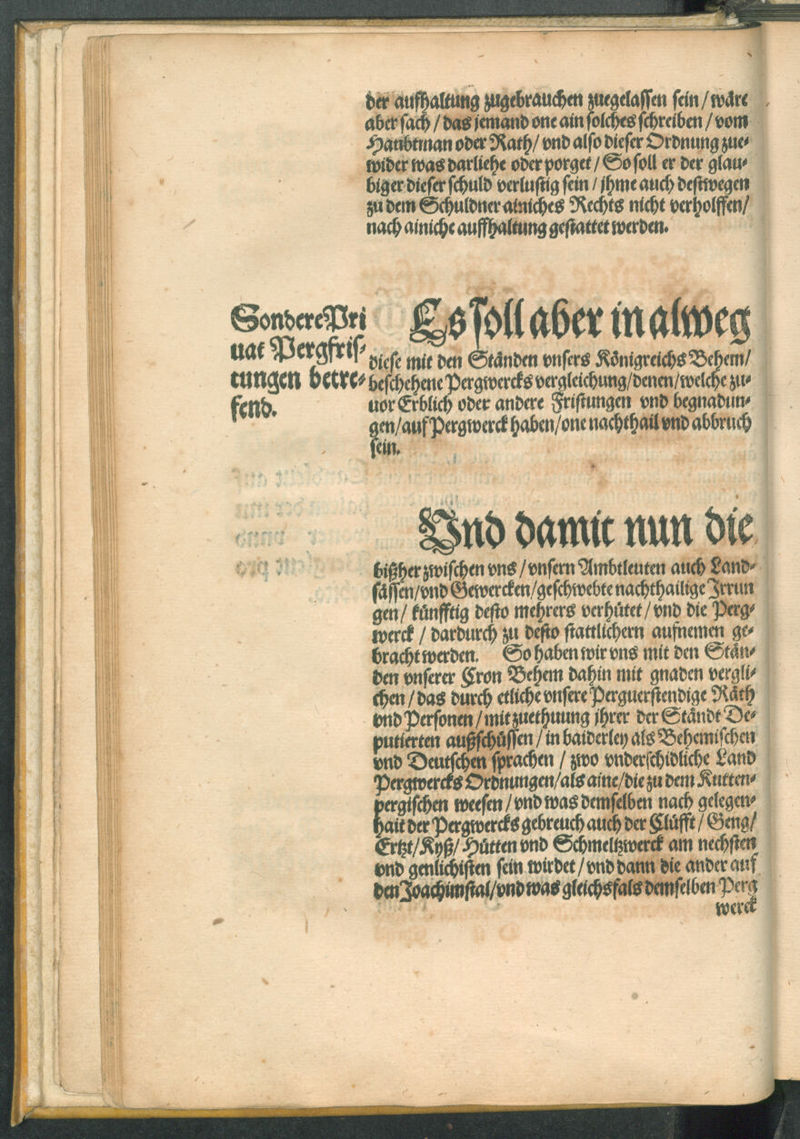 der aufhaltung zugebrauchen zuegelassen sein / wäre
aber sach / das jemand one ain solches schreiben / vom
Haubtman oder Rath / vnd also dieser Ordnung zue-
wider was darliehe oder porget / So soll er der glau-
biger dieser schuld verlustig sein / jhme auch destwegen
zu dem Schuldner ainiches Rechts nicht verholffen /
nach ainiche auffhaltung gestattet werden.
Sondere Pri
uat Pergfris-
tungen betre-
fend.
Es soll aber in alweg
diese mit den Ständen vnsers Königreichs Behem /
beschehene Pergwercks vergleichung / denen / welche zu-
uor Erblich oder andere Fristungen vnd begnadun-
gen / auf Pergwerck haben / one nachthail vnd abbruch
sein.
Vnd damit nun die
bißher zwischen vns / vnsern Ambtleuten auch Land-
sässen / vnd Gewercken / geschwebte nachthailige Irrun
gen / künfftig desto mehrers verhütet / vnd die Perg-
werck / dardurch zu desto stattlichern aufnemen ge-
bracht werden. So haben wir vns mit den Stän-
den vnserer Cron Behem dahin mit gnaden vergli-
chen / das durch etliche vnsere Perguerstendige Räth
vnd Personen / mit zuethuung jhrer der Ständt De-
putierten außschüssen / in baiderley als Behemischen
vnd Deutschen sprachen / zwo vnderschidliche Land
Pergwercks Ordnungen / als aine / die zu dem Kutten-
pergischen weesen / vnd was demselben nach gelegen-
hait der Pergwercks gebreuch auch der Clüfft / Geng /
Ertzt / Kyß / Hütten vnd Schmeltzwerck am nechsten
vnd genlichisten sein wirdet / vnd dann die ander auf
den Joachimstal / vnd was gleichsfals demselben Perg
werck